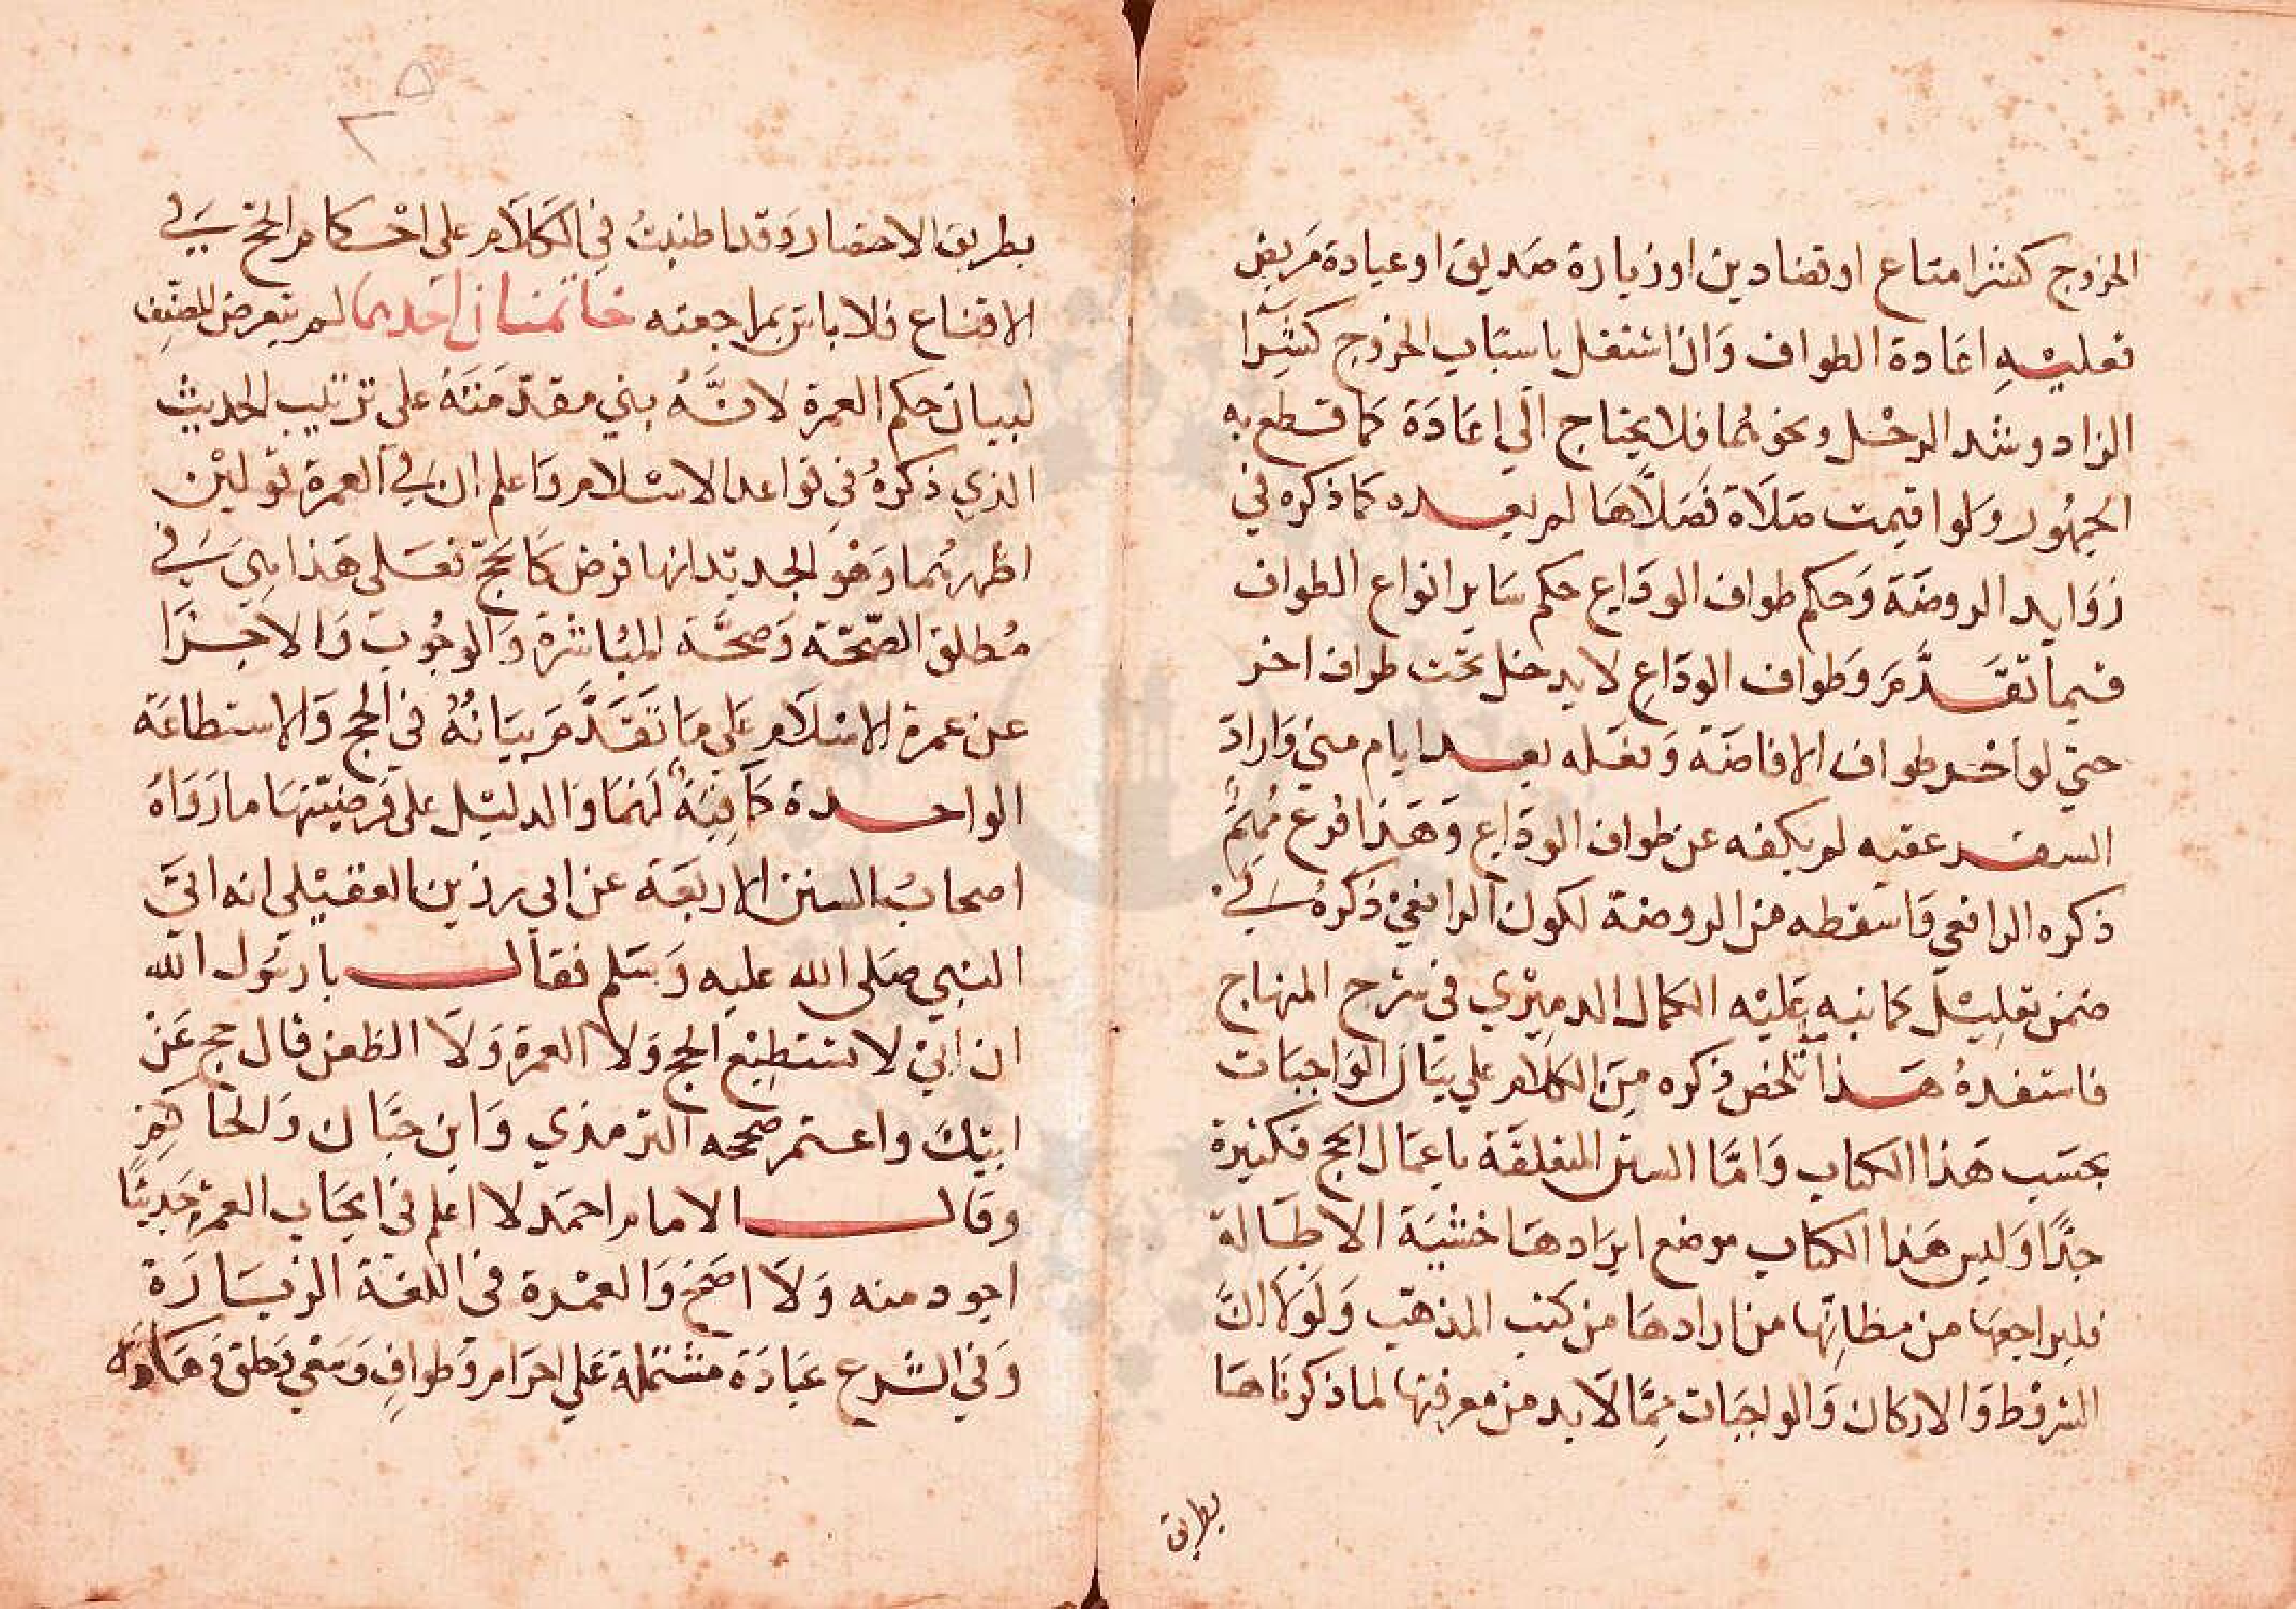 الخروج كشرا متاع او قضا دين او زيارة صديق او عيادة مريض
فعليه اعادة الطواف وان اشتغل باسباب الخروج كشرا
الزاد وشد الرحل ونحوهما فلا يحتاج الي اعادة كما قطع به
الجمهور ولو اقيمت صلاة فصلاها لم يعده كما ذكره في
زوايد الروضة وحكم طواف الوداع حكم ساير انواع الطواف
فيما تقدم وطواف الوداع لا يدخل تحت طواف اخر
حتي لو اخر طواف الافاضة وفعله بعد ايام مني واراد
السفر عقبه لم يكفه عن طواف الوداع وهذا فرع مهم
ذكره الرافعي واسقطه من الروضة لكون الرافعي ذكره في
ضمن تعليل كما نبه عليه الكمال الدميري في شرح المنهاج
فاستفده هذا تلخص ذكره من الكلام علي بيان الواجبات
بحسب هذا الكتاب واما السنن المتعلقة باعمال الحج فكثيرة
جدا وليس هذا الكتاب موضع ايرادها خشية الاطالة
فليراجعها من مظانها من ارادها من كتب المذهب ولولا ان
الشروط والاركان والواجبات مما لا بد من معرفتها لما ذكرناها
بطريق
٢٥
بطريق الاختصار وقد اطنبت في الكلام علي احكام الحج في
الاقناع فلا باس بمراجعته خاتمتان احديهما لم يتعرض المصنف
لبيان حكم العمرة لانه بني مقدمته علي ترتيب الحديث
الذي ذكره في قواعد الاسلام واعلم ان في العمرة قولين
اظهرهما وهو الجديد انها فرض كالحج فعلي هذا هي في
مطلق الصحة وصحة المباشرة والوجوب والاجزا
عن عمرة الاسلام علي ما تقدم بيانه في الحج والاستطاعة
الواحدة كافية لهما والدليل علي فرضيتها ما رواه
اصحاب السنن الاربعة عن ابي رزين العقيلي انه اتي
النبي صلي الله عليه وسلم فقال يا رسول الله
ان ابي لا يستطيع الحج ولا العمرة ولا الظعن قال حج عن
ابيك واعتمر صححه الترمذي وابن حبان والحاكم
وقال الامام احمد لا اعلم في ايجاب العمرة حديثا
اجود منه ولا اصح والعمرة في اللغة الزيارة
وفي الشرع عبادة مشتملة علي احرام وطواف وسعي وحلق